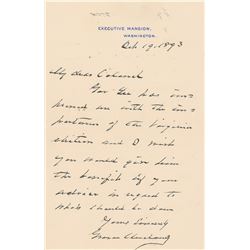 EXECUTIVE MANSION,
WASHINGTON.
Oct 19, 1893
My dear Colonel
Gov Lee has im
pressed me with the im
portance of the Virginia
election and I wish
you would give him
the benefit of your
advice in regard to
what should be done
Yours sincerely
Grover Cleveland